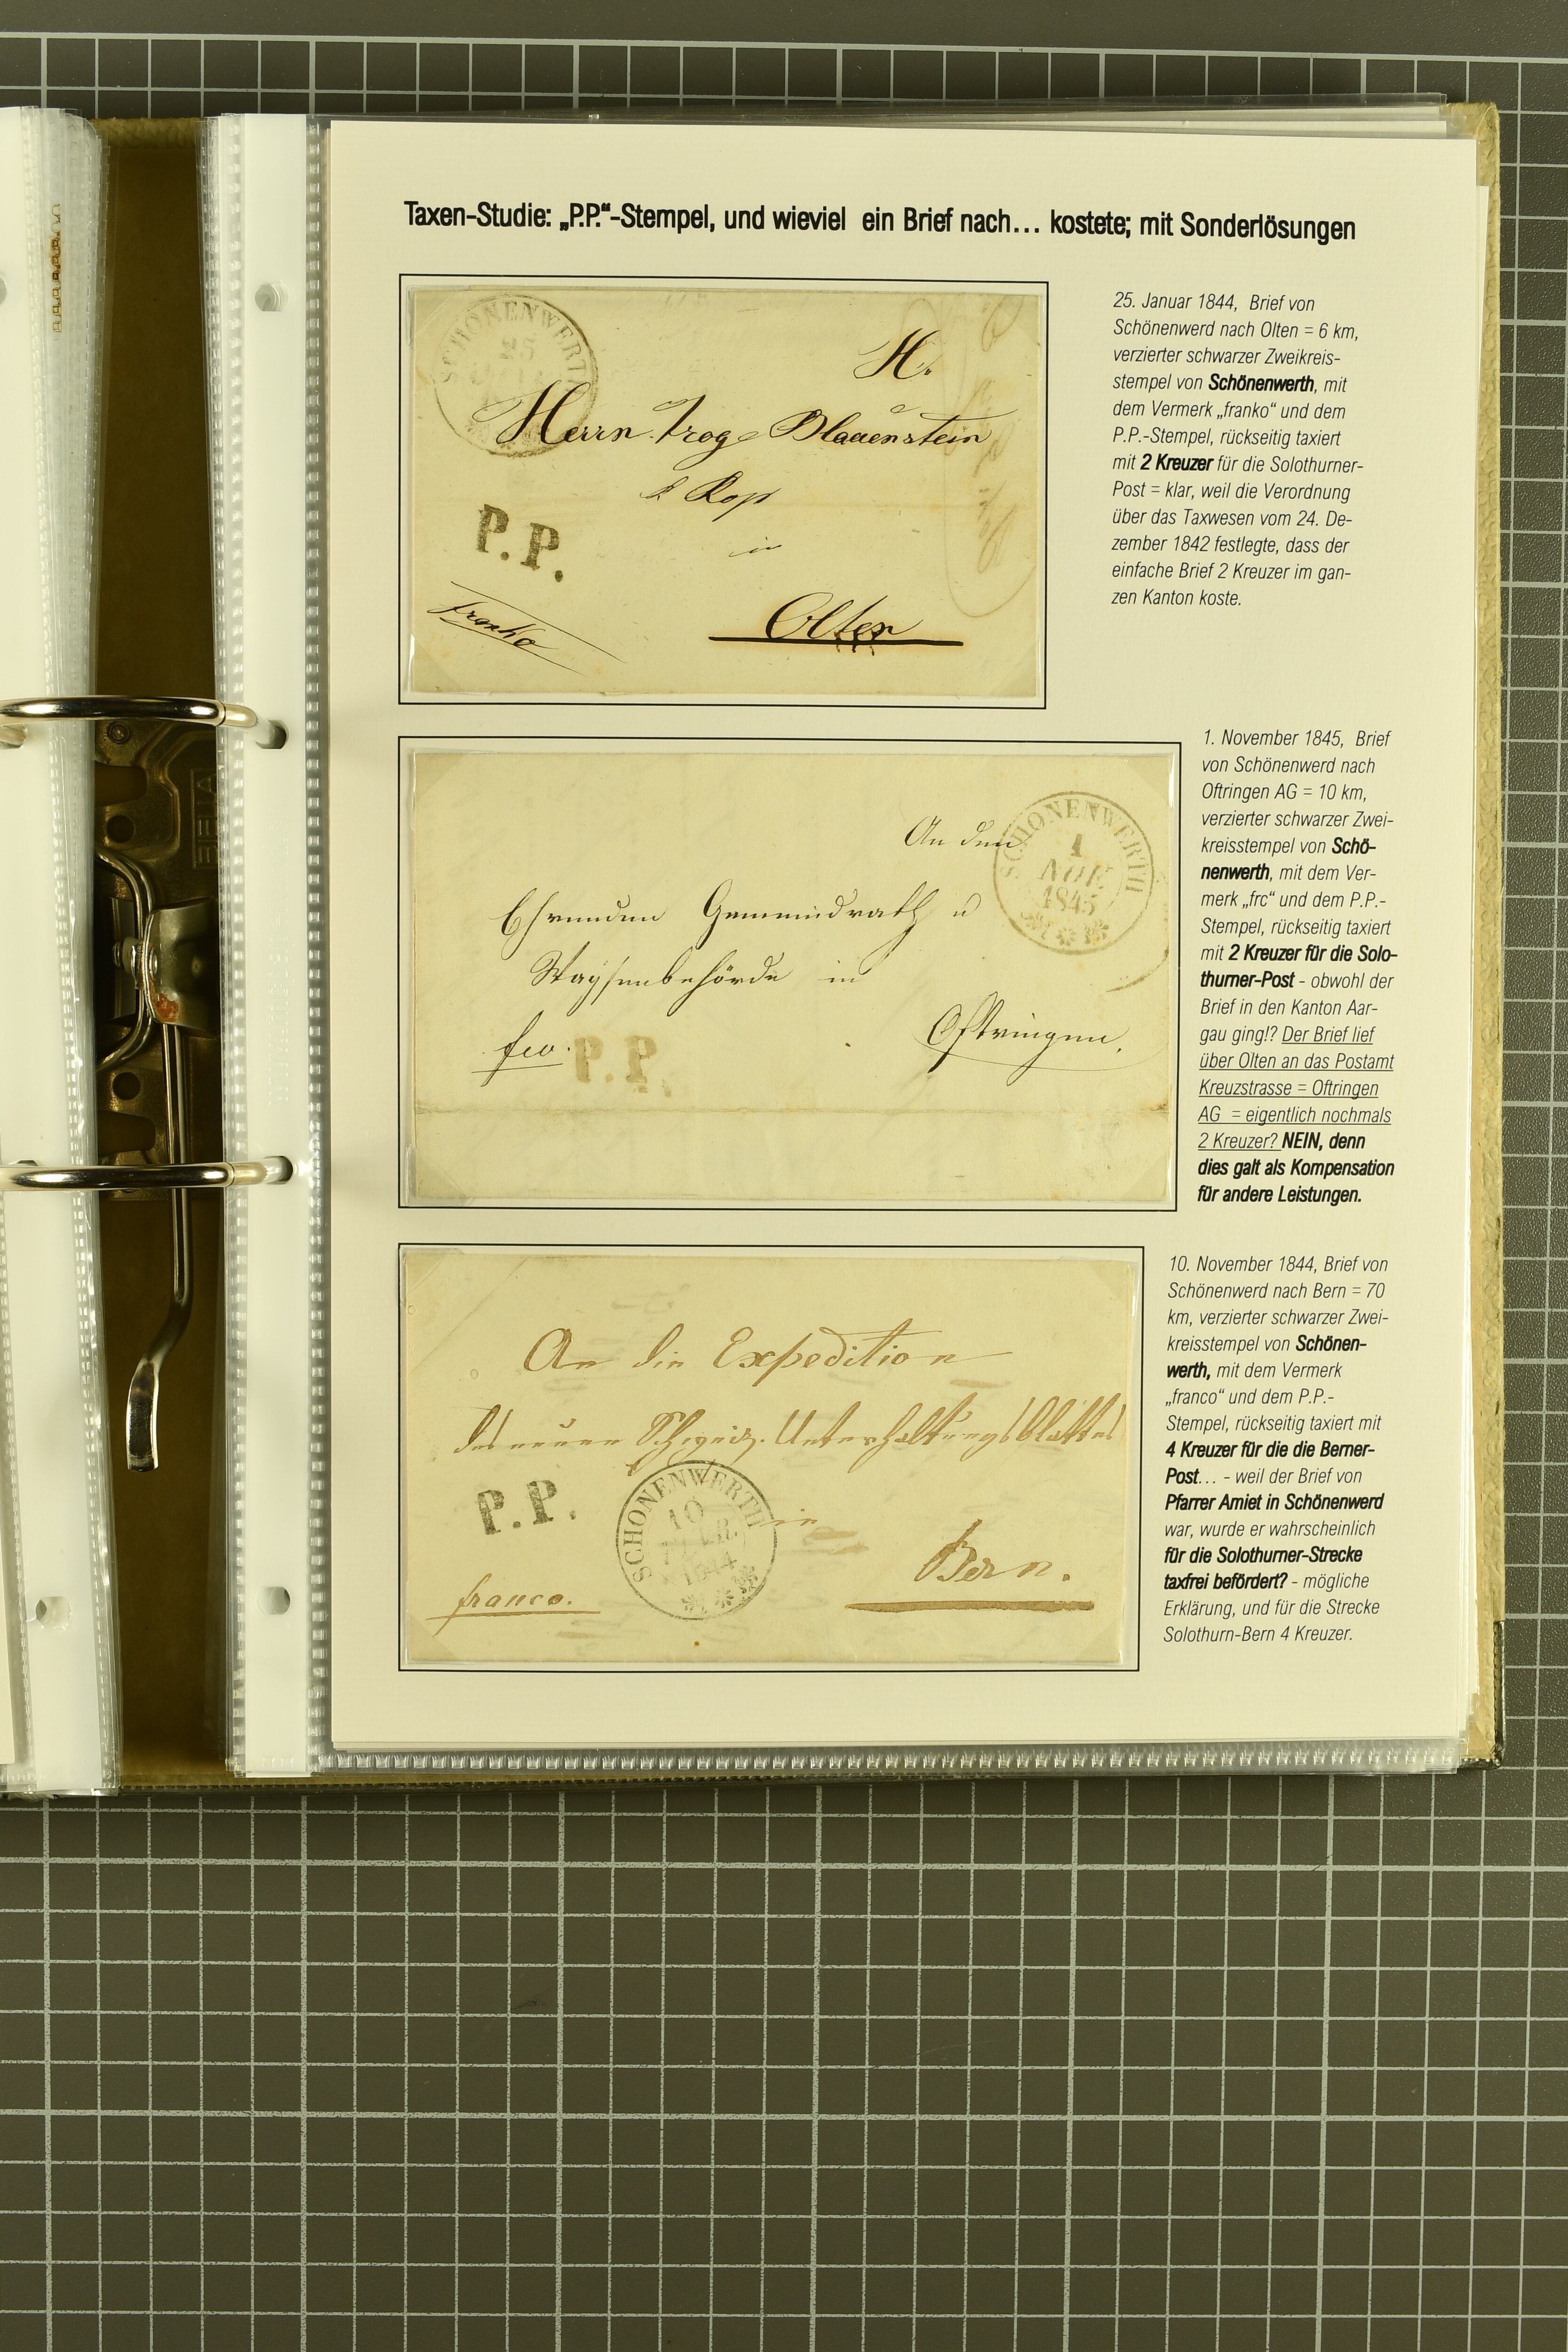 Taxen-Studie: „P.P.“-Stempel, und wieviel ein Brief nach... kostete; mit Sonderlösungen
SCHÖNENWERTH
25
H.
Herrn Trog & Blauenstein
in
P.P.
Franko
Olten
25. Januar 1844, Brief von
Schönenwerd nach Olten = 6 km,
verzierter schwarzer Zweikreis-
stempel von Schönenwerth, mit
dem Vermerk „franko“ und dem
P.P.-Stempel, rückseitig taxiert
mit 2 Kreuzer für die Solothurner-
Post = klar, weil die Verordnung
über das Taxwesen vom 24. De-
zember 1842 festlegte, dass der
einfache Brief 2 Kreuzer im gan-
zen Kanton koste.
SCHÖNENWERTH
1
NOV.
1845
An den
Ehrenden Gemeindrath u
Waysenbehörde in
fco. P.P.
Oftringen.
1. November 1845, Brief
von Schönenwerd nach
Oftringen AG = 10 km,
verzierter schwarzer Zwei-
kreisstempel von Schö-
nenwerth, mit dem Ver-
merk „frc“ und dem P.P.-
Stempel, rückseitig taxiert
mit 2 Kreuzer für die Solo-
thurner-Post - obwohl der
Brief in den Kanton Aar-
gau ging!? Der Brief lief
über Olten an das Postamt
Kreuzstrasse = Oftringen
AG = eigentlich nochmals
2 Kreuzer? NEIN, denn
dies galt als Kompensation
für andere Leistungen.
An die Expedition
des neuen Schweiz. Unterhaltungsblattes
P.P.
SCHÖNENWERTH
10
1844
in
Bern.
franco.
10. November 1844, Brief von
Schönenwerd nach Bern = 70
km, verzierter schwarzer Zwei-
kreisstempel von Schönen-
werth, mit dem Vermerk
„franco“ und dem P.P.-
Stempel, rückseitig taxiert mit
4 Kreuzer für die die Berner-
Post... - weil der Brief von
Pfarrer Amiet in Schönenwerd
war, wurde er wahrscheinlich
für die Solothurner-Strecke
taxfrei befördert? - mögliche
Erklärung, und für die Strecke
Solothurn-Bern 4 Kreuzer.